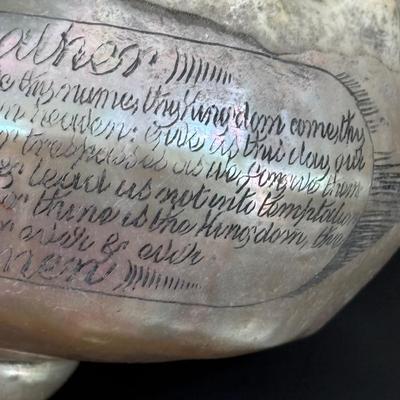 ather
thy name, thy kingdom come, thy
n heaven: Give us this day, our
r trespasses as we forgive them
lead us not into temptation
or thine is the kingdom, the
r ever & ever
men